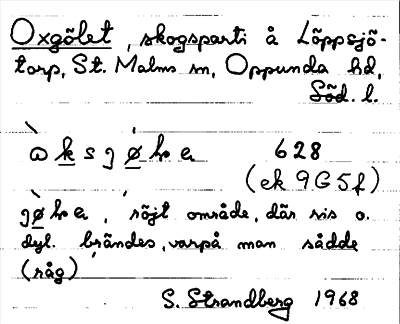 Oxgõlet, skogsparti å Lõppsjõ-
torp, St. Malms sn, Oppunda hd,
Sõd. l.
628
(ek 9G5f)
röjt område, där ris o.
dyl. brändes, varpå man sådde
(råg)
S. Strandberg 1968